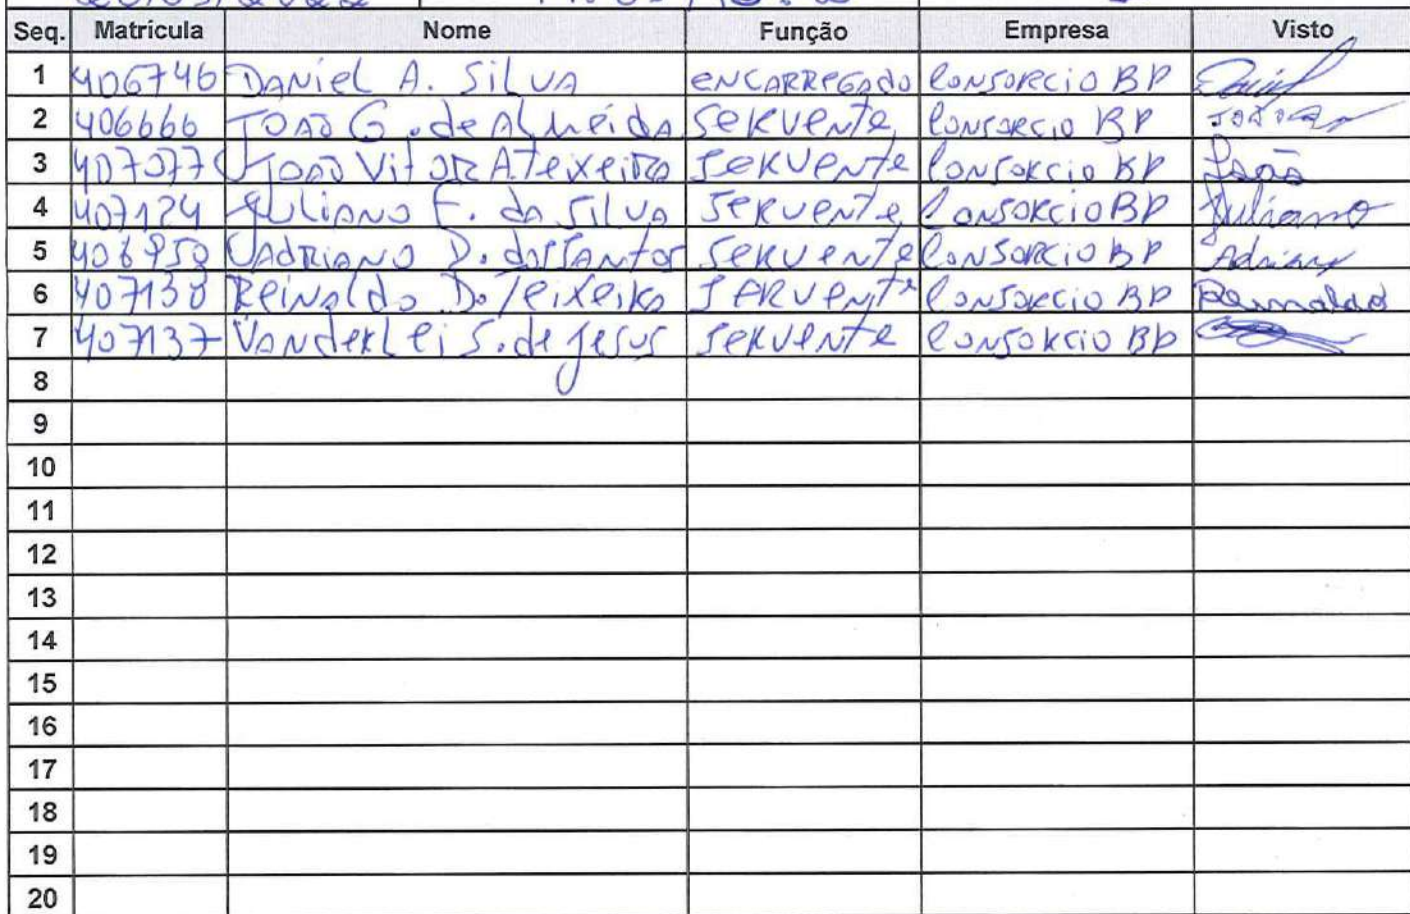 Seq. Matricula Nome Função Empresa Visto
1 406746 Daniel A. Silva encarregado Consorcio BP
2 406666 João G. de Almeida Servente Consorcio BP
3 407077 João Vitor A Teixeira Servente Consorcio BP João
4 407124 Juliano F. da Silva Servente Consorcio BP Juliano
5 Adriano D. dos Santos Servente Consorcio BP Adriano
6 407138 Reinaldo D. Teixeira Servente Consorcio BP Reinaldo
7 407137 Vanderlei S. de Jesus Servente Consorcio BP
8
9
10
11
12
13
14
15
16
17
18
19
20